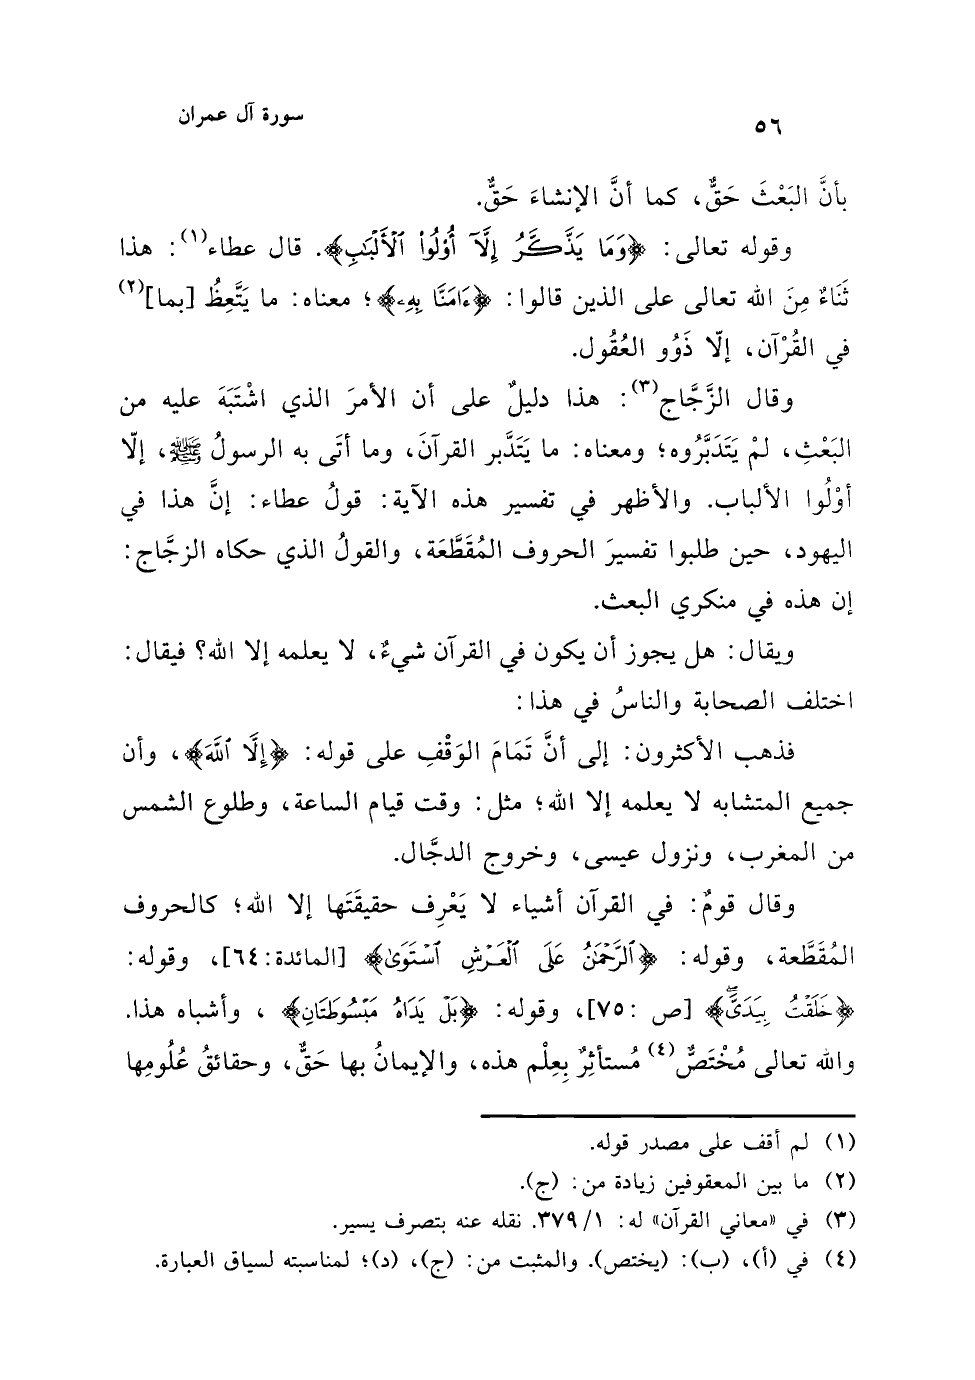 سورة آل عمران
٥٦
بأنَّ البَعْثَ حَقٌّ، كما أنَّ الإنشاءَ حَقٌّ.
وقوله تعالى: ﴿وَمَا يَذَّكَّرُ إِلَّآ أُوْلُواْ ٱلْأَلْبَٰبِ﴾. قال عطاء(١): هذا
ثَنَاءٌ مِنَ الله تعالى على الذين قالوا: ﴿ءَامَنَّا بِهِۦ﴾؛ معناه: ما يَتَّعِظُ [بما](٢)
في القُرْآن، إلّا ذَوُو العُقُول.
وقال الزَّجَّاج(٣): هذا دليلٌ على أن الأمرَ الذي اشْتَبَهَ عليه من
البَعْثِ، لمْ يَتَدَبَّرُوه؛ ومعناه: ما يَتَدَّبر القرآنَ، وما أتَى به الرسولُ ﷺ، إلّا
أوْلُوا الألباب. والأظهر في تفسير هذه الآية: قولُ عطاء: إنَّ هذا في
اليهود، حين طلبوا تفسيرَ الحروف المُقَطَّعَة، والقولُ الذي حكاه الزجَّاج:
إن هذه في منكري البعث.
ويقال: هل يجوز أن يكون في القرآن شيءٌ، لا يعلمه إلا الله؟ فيقال:
اختلف الصحابة والناسُ في هذا:
فذهب الأكثرون: إلى أنَّ تَمَامَ الوَقْفِ على قوله: ﴿إِلَّا ٱللَّهَ﴾، وأن
جميع المتشابه لا يعلمه إلا الله؛ مثل: وقت قيام الساعة، وطلوع الشمس
من المغرب، ونزول عيسى، وخروج الدجَّال.
وقال قومٌ: في القرآن أشياء لا يَعْرِف حقيقَتَها إلا الله؛ كالحروف
المُقَطَّعة، وقوله: ﴿ٱلرَّحْمَٰنُ عَلَى ٱلْعَرْشِ ٱسْتَوَىٰ﴾ [المائدة:٦٤]، وقوله:
﴿خَلَقْتُ بِيَدَيَّۖ﴾ [ص :٧٥]، وقوله: ﴿بَلْ يَدَاهُ مَبْسُوطَتَانِ﴾ ، وأشباه هذا.
والله تعالى مُخْتَصٌّ(٤) مُستأثِرٌ بِعِلْم هذه، والإيمانُ بها حَقٌّ، وحقائقُ عُلُومِها
(١) لم أقف على مصدر قوله.
(٢) ما بين المعقوفين زيادة من: (ج).
(٣) في «معاني القرآن» له: ١/ ٣٧٩. نقله عنه بتصرف يسير.
(٤) في (أ)، (ب): (يختص). والمثبت من: (ج)، (د)؛ لمناسبته لسياق العبارة.